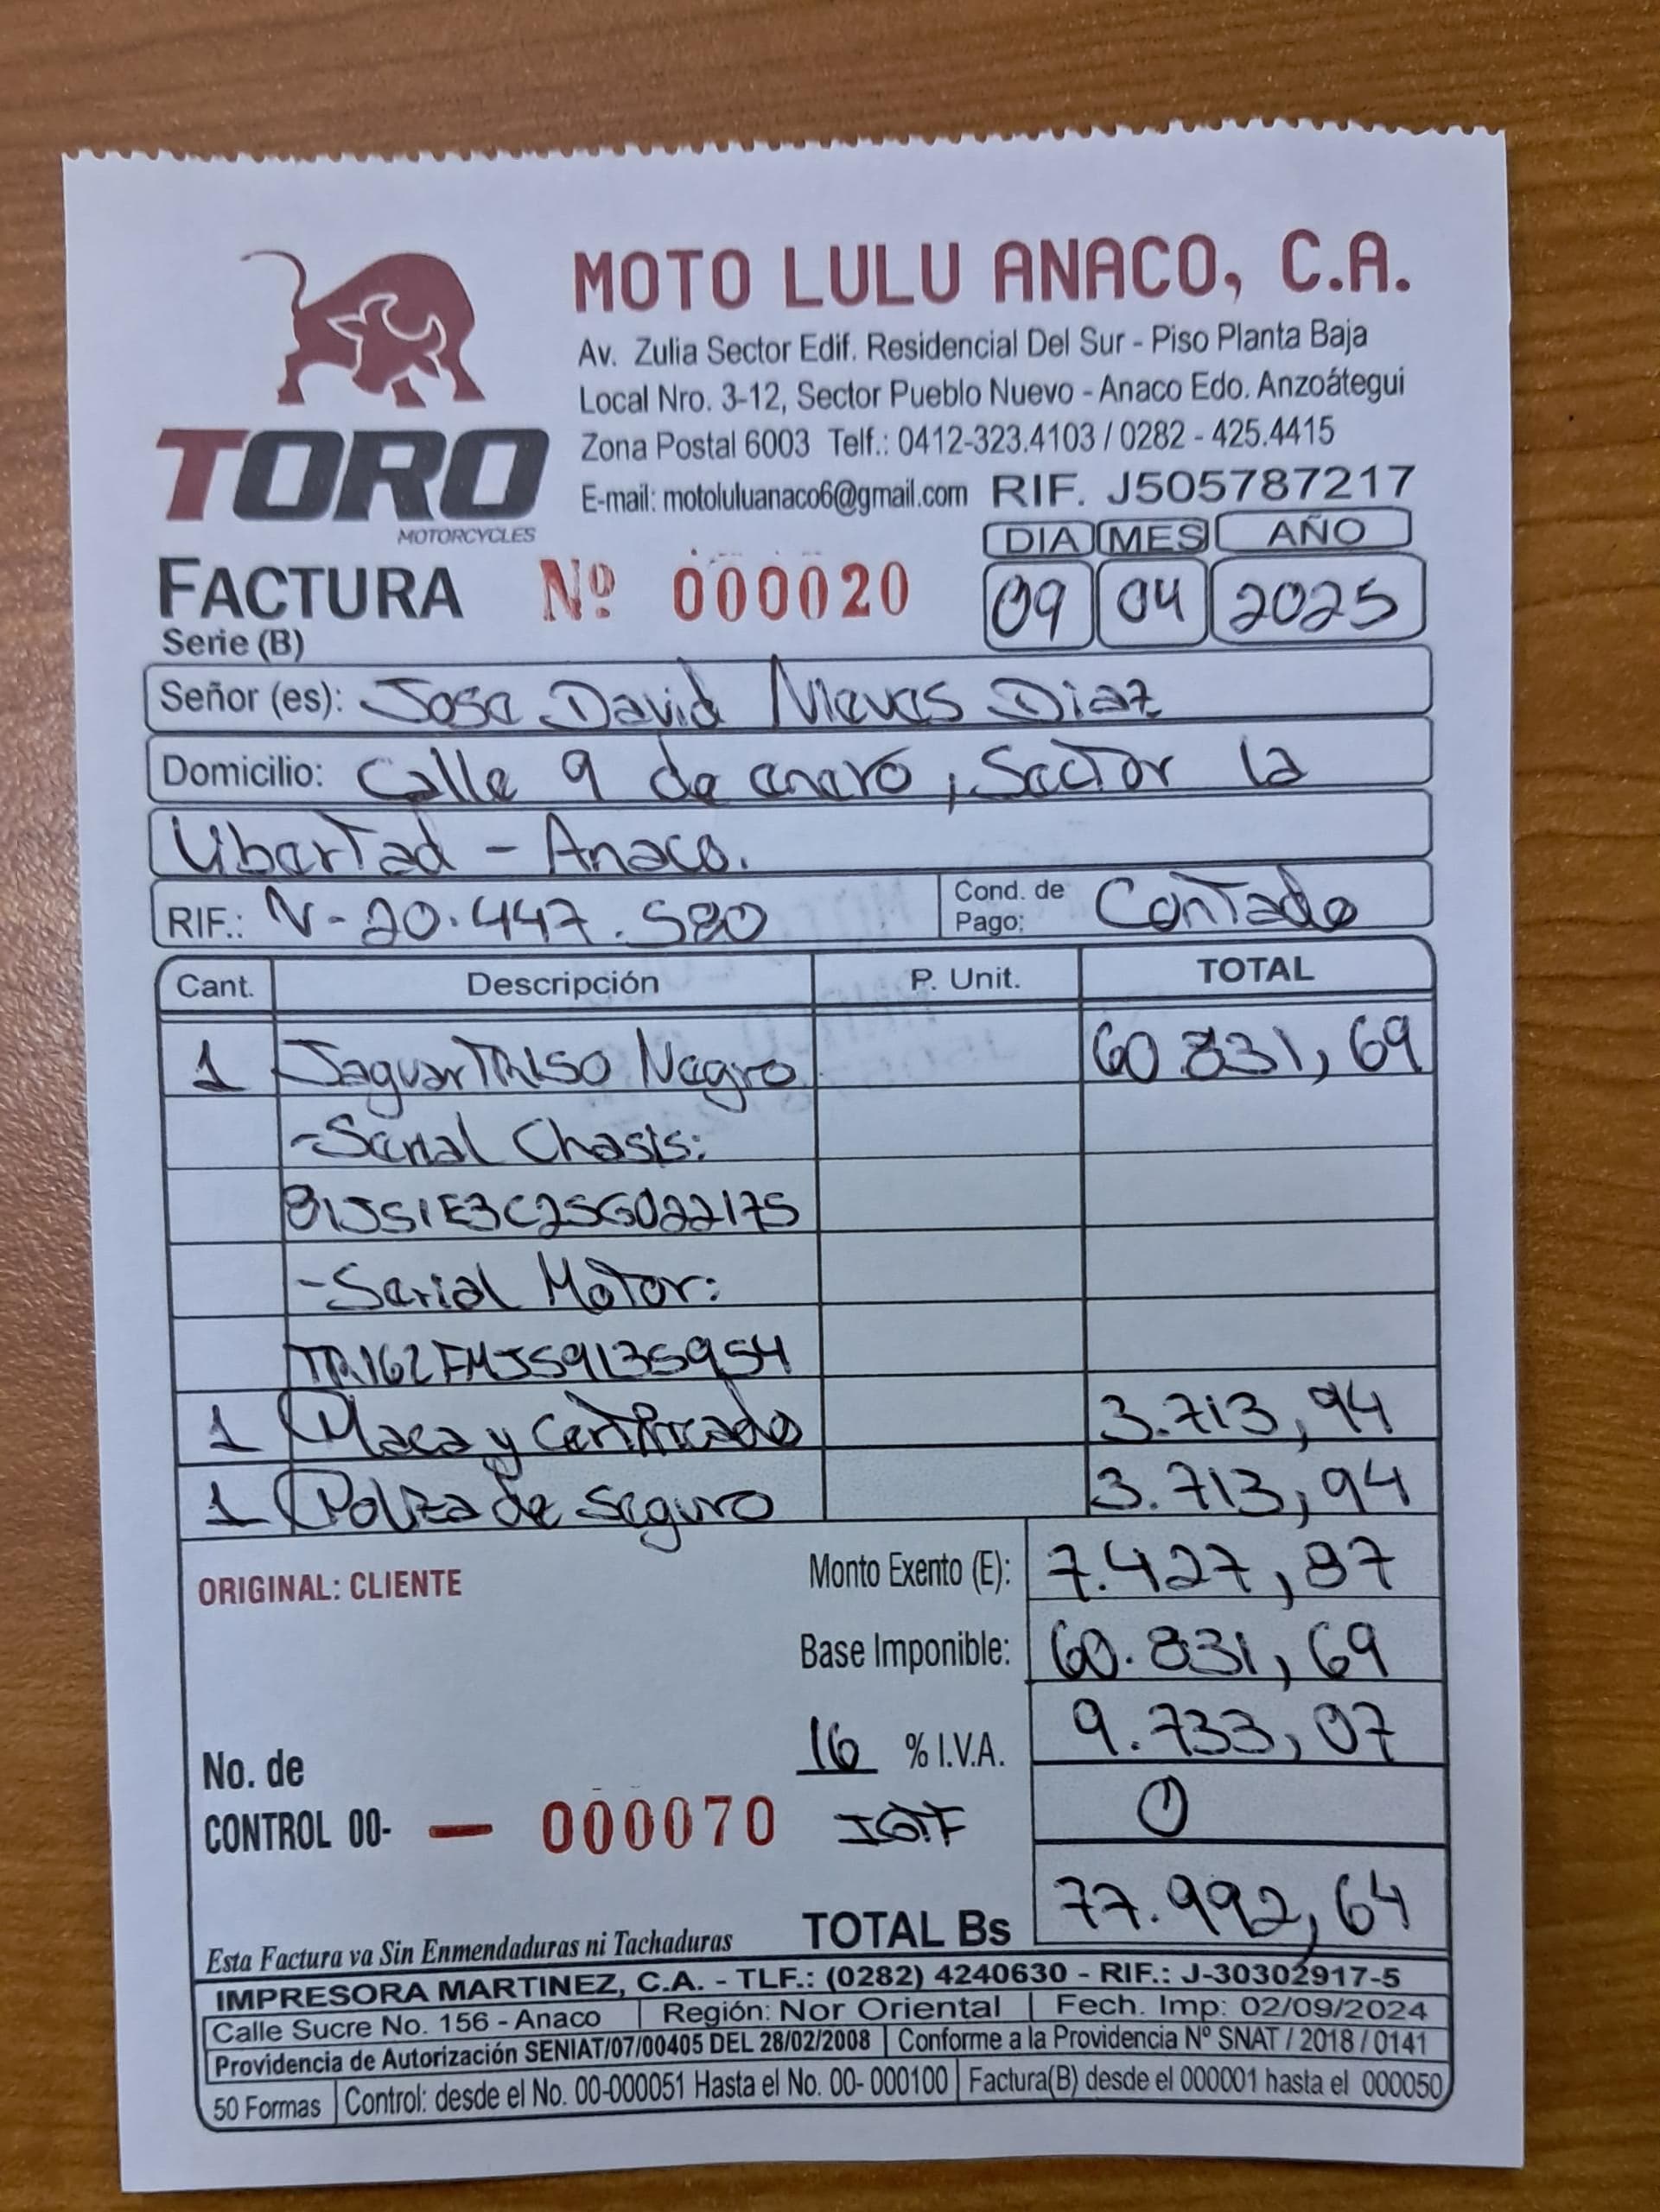 MOTO LULU ANACO, C.A.
Av. Zulia Sector Edif. Residencial Del Sur - Piso Planta Baja
Local Nro. 3-12, Sector Pueblo Nuevo - Anaco Edo. Anzoátegui
Zona Postal 6003 Telf.: 0412-323.4103 / 0282 - 425.4415
E-mail: motoluluanaco6@gmail.com RIF. J505787217
TORO
MOTORCYCLES
DIA MES AÑO
FACTURA Nº 000020 09 04 2025
Serie (B)
Señor (es): Jose David Nieves Diaz
Domicilio: Calle 9 de enero, Sector la
Libertad - Anaco.
RIF.: V-20.447.580 Cond. de Pago: Contado
Cant. Descripción P. Unit. TOTAL
1 Jaguar TR150 Negro 60.831,69
-Serial Chasis:
81JS1E3C2SG022175
-Serial Motor:
TR162FMJS9135954
1 Placa y Certificado 3.713,94
1 Poliza de Seguro 3.713,94
ORIGINAL: CLIENTE
Monto Exento (E): 7.427,87
Base Imponible: 60.831,69
16 % I.V.A. 9.733,07
No. de
CONTROL 00- — 000070 IGTF 0
TOTAL Bs 77.992,64
Esta Factura va Sin Enmendaduras ni Tachaduras
IMPRESORA MARTINEZ, C.A. - TLF.: (0282) 4240630 - RIF.: J-30302917-5
Calle Sucre No. 156 - Anaco Región: Nor Oriental Fech. Imp: 02/09/2024
Providencia de Autorización SENIAT/07/00405 DEL 28/02/2008 Conforme a la Providencia Nº SNAT / 2018 / 0141
50 Formas Control: desde el No. 00-000051 Hasta el No. 00- 000100 Factura(B) desde el 000001 hasta el 000050